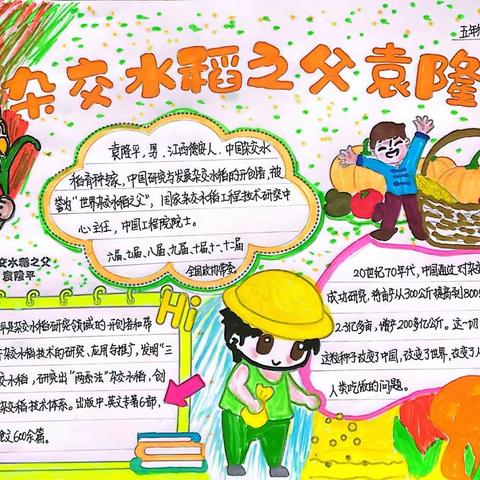 五年
杂交水稻之父袁隆
袁隆平,男.江西德安人.中国杂交水
稻育种专家,中国研究与发展杂交水稻的开创者,被
誉为"世界杂交水稻之父",国家杂交水稻工程技术研究中
心主任,中国工程院院士。
六届、七届、八届、九届、十届、十一、十二届
全国政协常委
交水稻之父
袁隆平
Hi
平是杂交水稻研究领域的开创者和带
于杂交水稻技术的研究、应用与推广,发明"三
交水稻,研究出"两系法"杂交水稻,创
杂交稻技术体系。出版中、英文专著6部,
论文60余篇。
20世纪70年代,中国通过对杂
成功研究,将亩产从300公斤提高到800
2-3亿多亩,增产200多亿公斤。这一切
这粒种子改变了中国,改变了世界,改变了人
人类吃饭的问题。